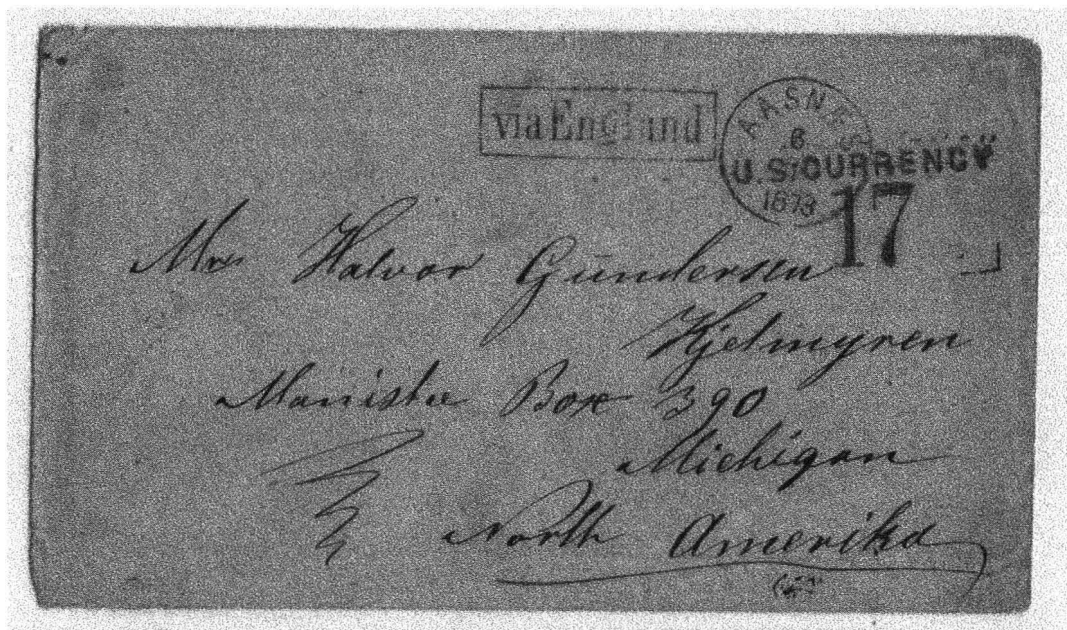 via England
AASNES
6
1873
U.S. CURRENCY
17
Mr Halvor Gundersen
Kjelmyren
Manistee Box 390
Michigan
North Amerika